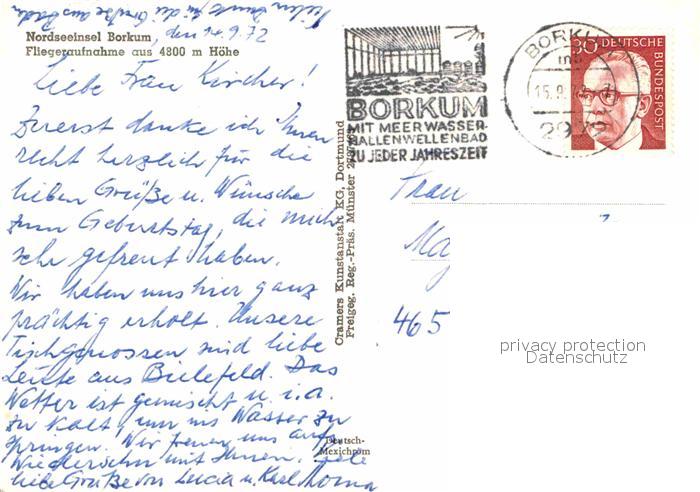 Vielen Dank für die Grüße aus
Nordseeinsel Borkum, den 14.9.72
Fliegeraufnahme aus 4800 m Höhe
Liebe Frau Kircher!
Zuerst danke ich Ihnen
recht herzlich für die
lieben Grüße u. Wünsche
zum Geburtstag, die mich
sehr gefreut haben.
Wir haben uns hier ganz
prächtig erholt. Unsere
Tischgenossen sind liebe
Leute aus Bielefeld. Das
Wetter ist gemischt u. i. a.
zu kalt, um ins Wasser zu
springen. Wir freuen uns aufs
Wiedersehn mit Ihnen. Viele
liebe Grüße von Lucia u. Karl
Deutsch-
Mexichrom
Cramers Kunstanstalt KG, Dortmund
Freigeg. Reg.-Präs. Münster
BORKUM
MIT MEERWASSER-
HALLENWELLENBAD
ZU JEDER JAHRESZEIT
BORKUM
15.9.72
2972
30 DEUTSCHE
BUNDESPOST
Frau
465
privacy protection
Datenschutz